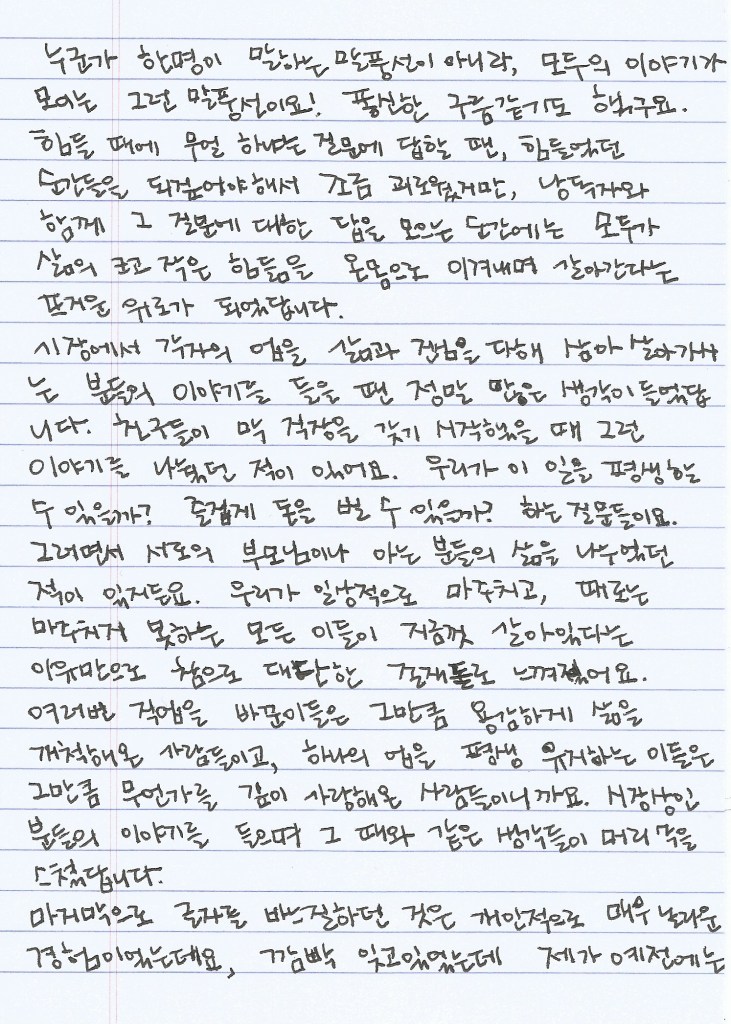 누군가 한명이 말하는 말풍선이 아니라, 모두의 이야기가
모이는 그런 말풍선이요! 푹신한 구름같기도 했구요.
힘들 때에 무얼 하냐는 질문에 답할 땐, 힘들었던
순간들을 되짚어야해서 조금 괴로웠지만, 낭독자와
함께 그 질문에 대한 답을 모으는 순간에는 모두가
삶의 크고 작은 힘듦을 온몸으로 이겨내며 살아간다는
뜨거운 위로가 되었답니다.
시장에서 각자의 업을 삶과 젊음을 다해 삼아 살아가시
는 분들의 이야기를 들을 땐 정말 많은 생각이 들었답
니다. 친구들이 막 직장을 갖기 시작했을 때 그런
이야기를 나눴던 적이 있어요. 우리가 이 일을 평생할
수 있을까? 즐겁게 돈을 벌 수 있을까? 하는 질문들이요.
그러면서 서로의 부모님이나 아는 분들의 삶을 나누었던
적이 있거든요. 우리가 일상적으로 마주치고, 때로는
마주치지 못하는 모든 이들이 지금껏 살아있다는
이유만으로 참으로 대단한 존재들로 느껴졌어요.
여러번 직업을 바꾼이들은 그만큼 용감하게 삶을
개척해온 사람들이고, 하나의 업을 평생 유지하는 이들은
그만큼 무언가를 깊이 사랑해온 사람들이니까요. 시장상인
분들의 이야기를 들으며 그 때와 같은 생각들이 머리 속을
스쳤답니다.
마지막으로 글자를 바느질하던 것은 개인적으로 매우 놀라운
경험이었는데요, 깜빡 잊고있었는데 제가 예전에는